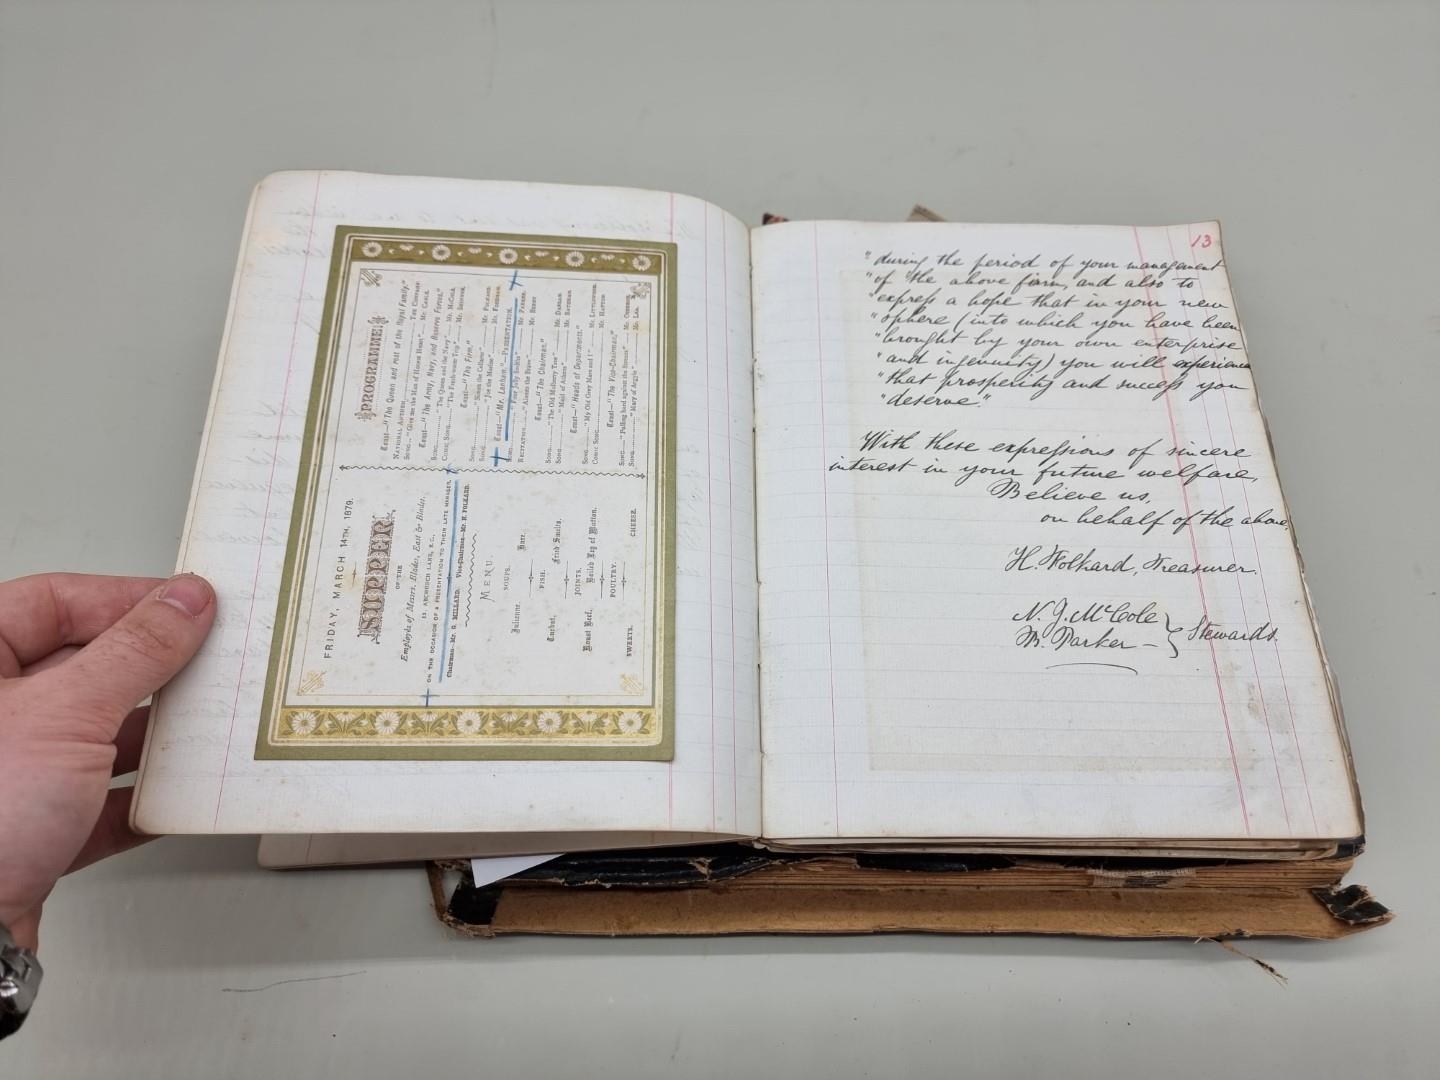 FRIDAY, MARCH 14TH, 1879.
SUPPER
OF THE
Employés of Messrs. Blades, East & Blades,
11 ABCHURCH LANE, E.C.,
ON THE OCCASION OF A PRESENTATION TO THEIR LATE MANAGER.
Chairman—Mr. G. MILLARD. Vice-Chairman—Mr. H. FOLKARD.
MENU.
SOUPS.
Julienne. Hare.
FISH.
Turbot. Fried Smelts.
JOINTS.
Roast Beef. Boiled Leg of Mutton.
POULTRY.
SWEETS. CHEESE.
PROGRAMME.
Toast—"The Queen and rest of the Royal Family."
NATIONAL ANTHEM THE COMPANY.
SONG "Give me the Man of Honest Heart" Mr. CABLE.
Toast—"The Army, Navy, and Reserve Forces."
SONG "The Queen and the Navy" Mr. McCOLE.
COMIC SONG "The Fresh-water Trip" Mr.
Toast—"The Firm."
SONG "Simon the Cellarer" Mr. FOLKARD.
SONG "Joe the Marine" Mr.
Toast—"Mr. Lanham."—PRESENTATION.
SONG "Four Jolly Smiths" Mr. PARKER.
RECITATION "Alonzo the Brave" Mr. BERRY
Toast—"The Chairman."
SONG "The Old Mulberry Tree" Mr.
SONG "Maid of Athens" Mr. BATEMAN
Toast—"Heads of Departments."
SONG "My Old Grey Mare and I" Mr.
COMIC SONG Mr.
Toast—"The Vice-Chairman."
SONG "Pulling hard against the Stream" Mr.
SONG "Mary of Argyle" Mr. LEE.
13
"during the period of your management
"of the above firm, and also to
"express a hope that in your new
"sphere (into which you have been
"brought by your own enterprise
"and ingenuity) you will experience
"that prosperity and success you
"deserve."
With these expressions of sincere
interest in your future welfare,
Believe us,
on behalf of the above,
H. Folkard, Treasurer.
N. J. McCole
B. Parker — } Stewards.